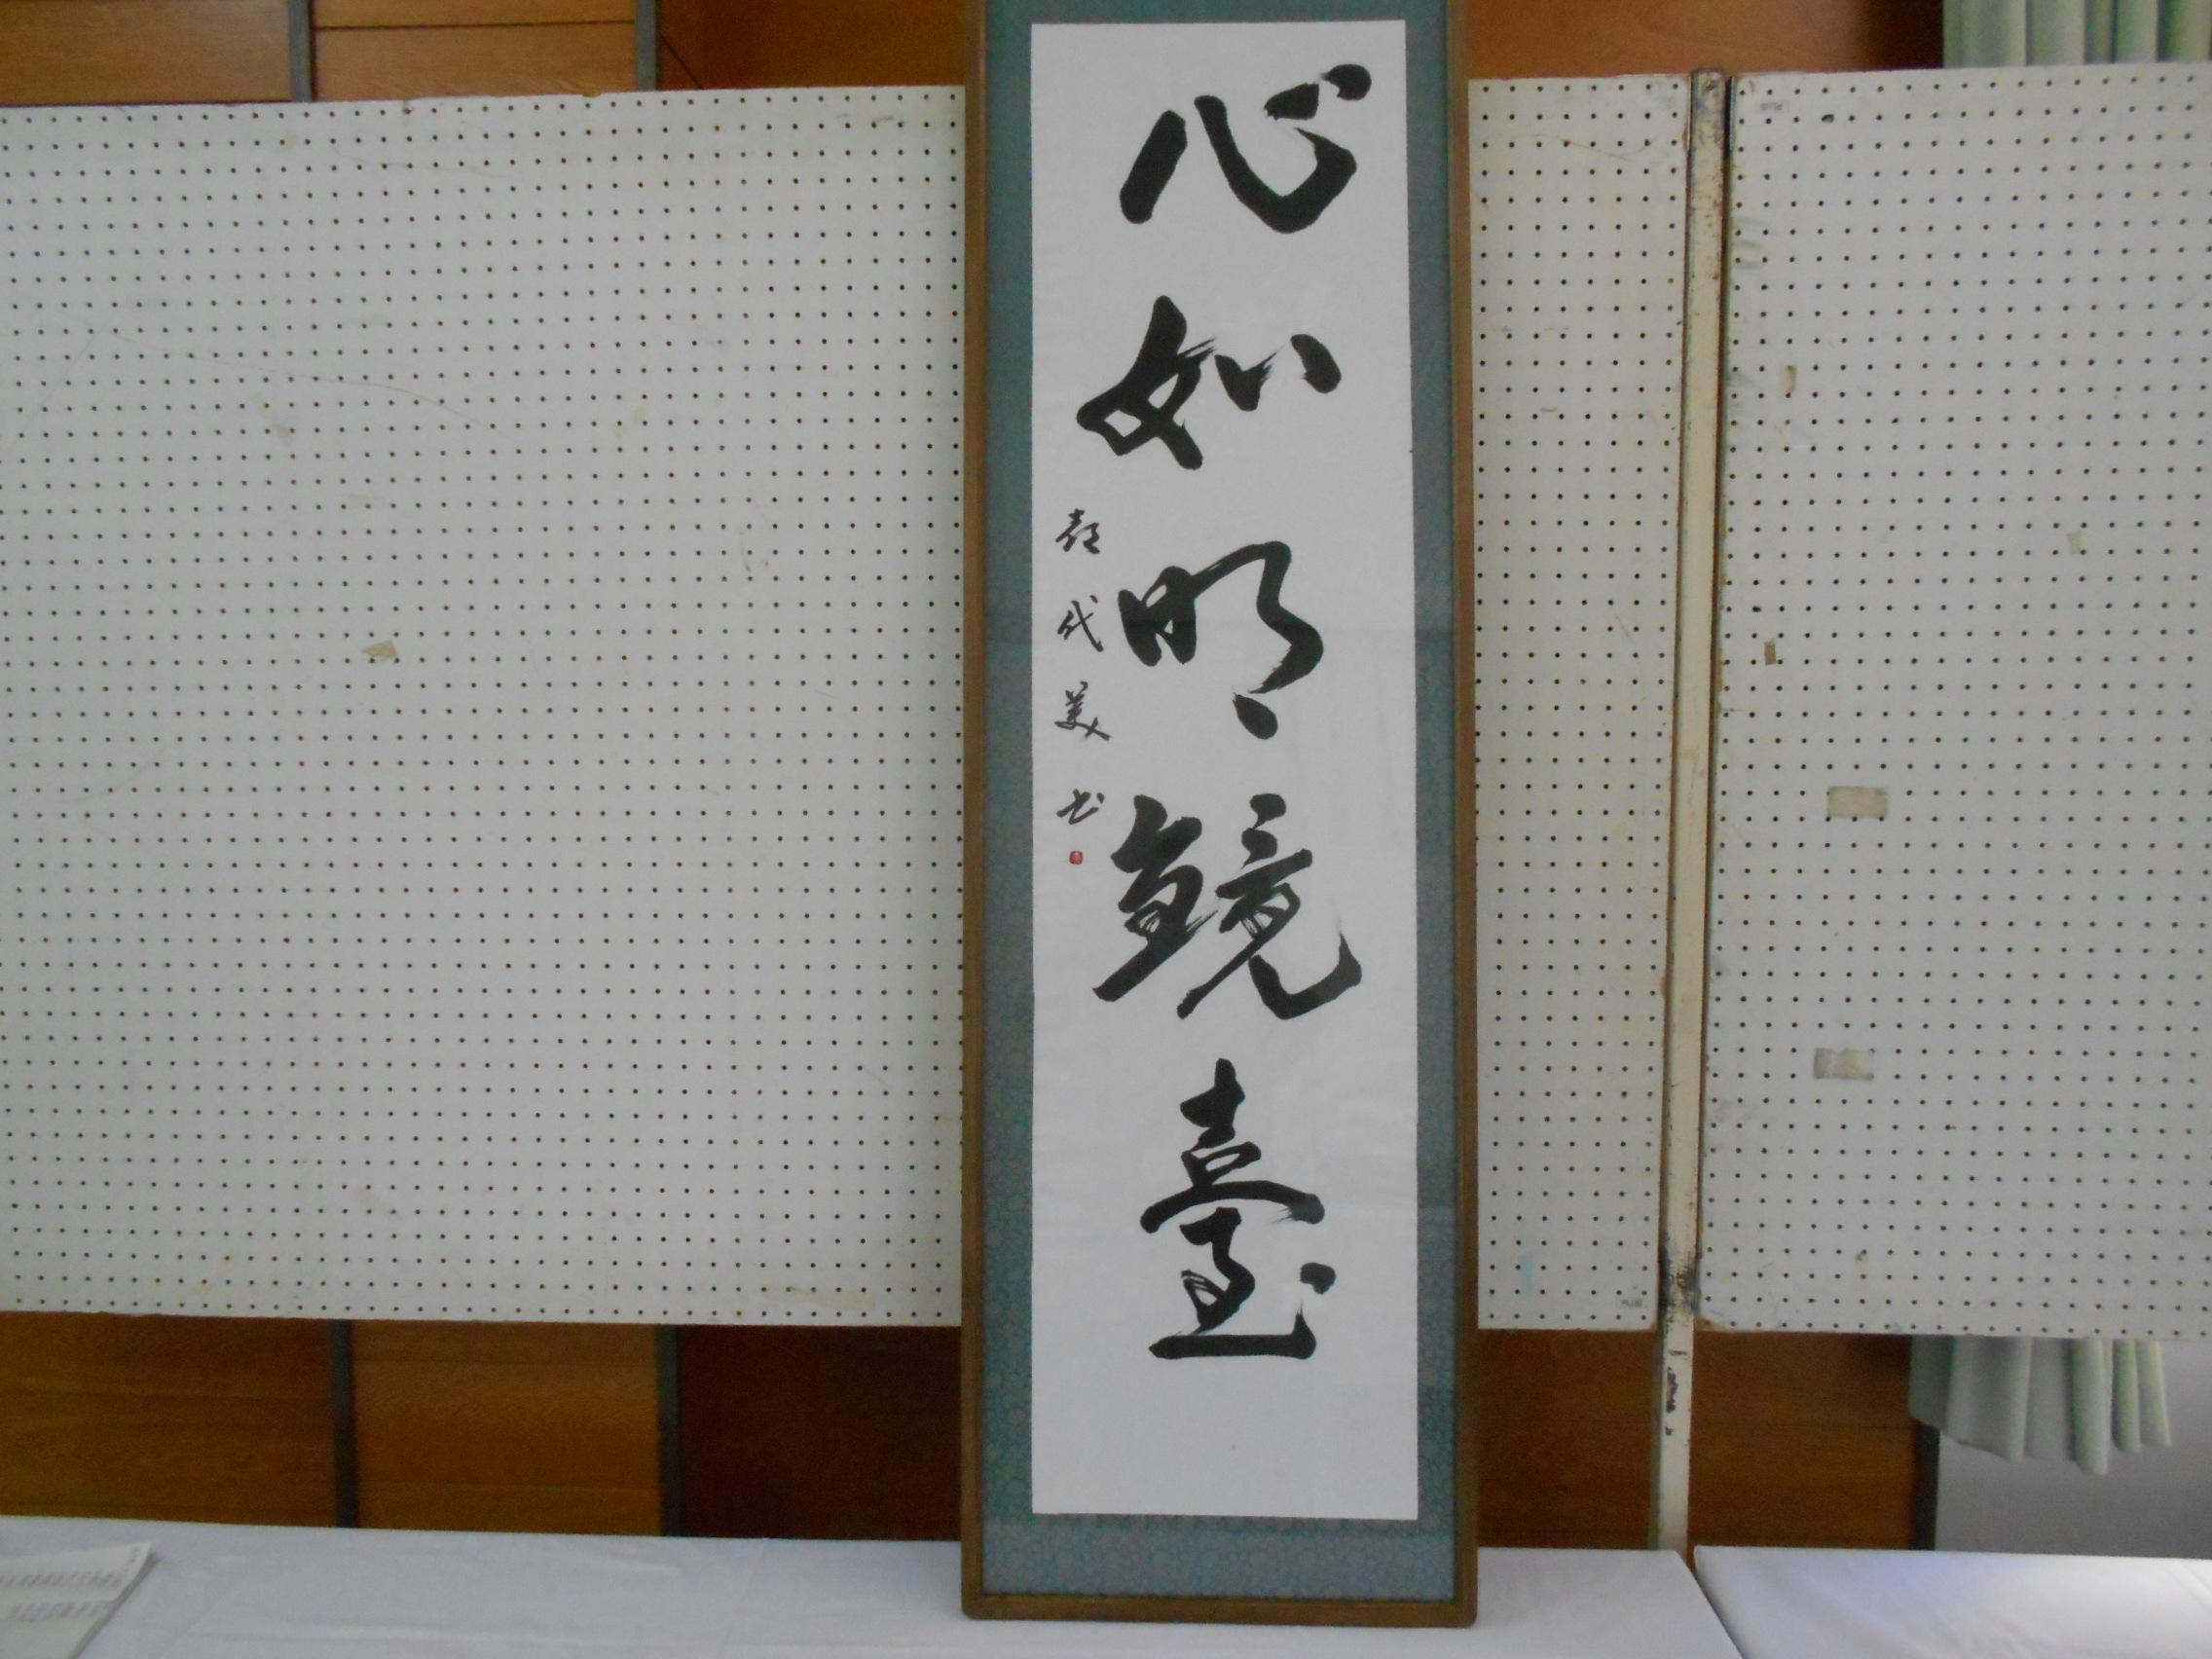 心如明鏡臺
代美書